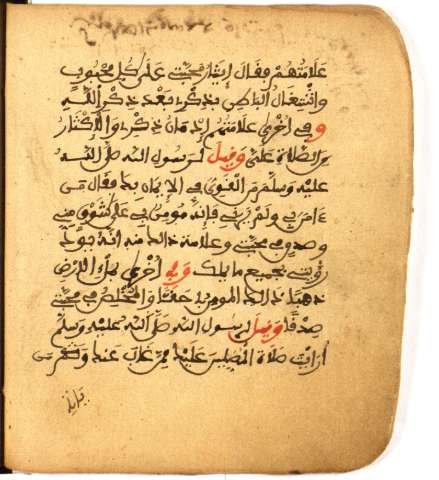 علامتهم فقال إيثار محبتي على كل محبوب
واشتغال الباطن بذكري بعد ذكر الله
وفي أخرى علامتهم إدمان ذكري والإكثار
من الصلاة علي وقيل لرسول الله صلى الله
عليه وسلم من القوي في الإيمان بك فقال من
ءامن بي ولم يرني فإنه مومن بي على شوق مني
وصدق في محبتي وعلامة ذلك منه أنه يود
رؤيتي بجميع ما يملك وفي أخرى ملء الأرض
ذهبا ذلك المومن بي حقا والمخلص في محبتي
صدقا وقيل لرسول الله صلى الله عليه وسلم
أرايت صلاة المصلين عليك ممن غاب عنك